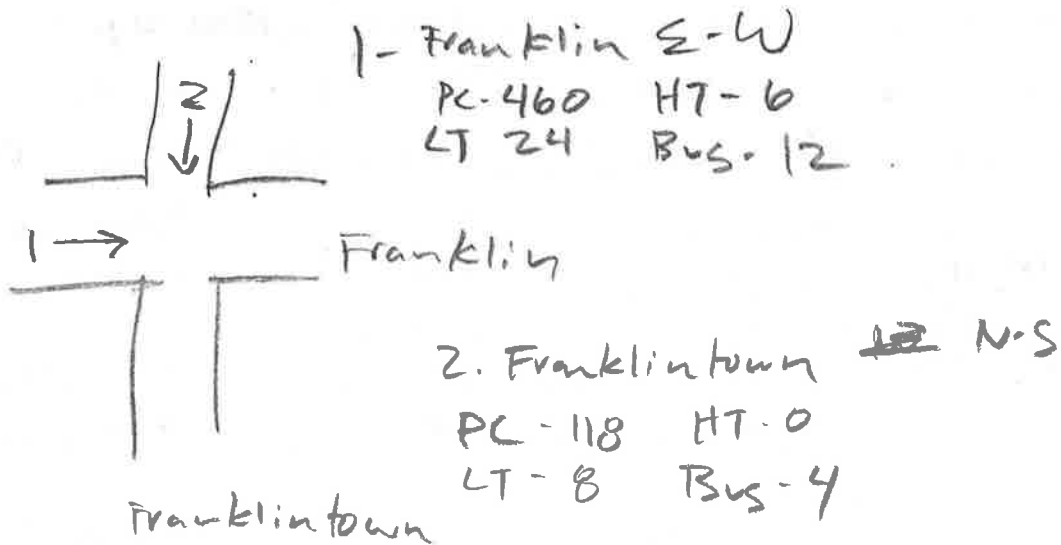 1- Franklin E-W
PC-460 HT-6
LT 24 Bus-12
2
1
Franklin
2. Franklintown N-S
PC-118 HT-0
LT-8 Bus-4
Franklintown